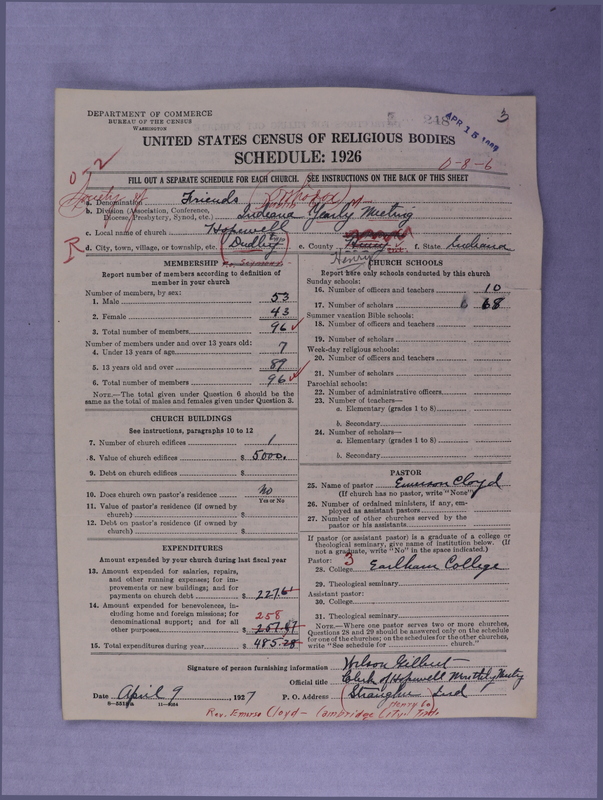 DEPARTMENT OF COMMERCE
BUREAU OF THE CENSUS
WASHINGTON
3
248
APR 15
UNITED STATES CENSUS OF RELIGIOUS BODIES
SCHEDULE: 1926
0-8-6
FILL OUT A SEPARATE SCHEDULE FOR EACH CHURCH. SEE INSTRUCTIONS ON THE BACK OF THIS SHEET
Society of Friends (Orthodox)
a. Denomination
b. Division (Association, Conference, Diocese, Presbytery, Synod, etc.) Indiana Yearly Meeting
c. Local name of church Hopewell
R
d. City, town, village, or township, etc. Dudley twp e. County Henry f. State Indiana
Henry
MEMBERSHIP
Report number of members according to definition of
member in your church
Number of members, by sex:
1. Male 53
2. Female 43
3. Total number of members 96
Number of members under and over 13 years old:
4. Under 13 years of age 7
5. 13 years old and over 89
6. Total number of members 96
NOTE.—The total given under Question 6 should be
the same as the total of males and females given under Question 3.
CHURCH BUILDINGS
See instructions, paragraphs 10 to 12
7. Number of church edifices 1
8. Value of church edifices $ 5000.
9. Debt on church edifices $
10. Does church own pastor's residence No
Yes or No
11. Value of pastor's residence (if owned by
church) $
12. Debt on pastor's residence (if owned by
church) $
EXPENDITURES
Amount expended by your church during last fiscal year
13. Amount expended for salaries, repairs,
and other running expenses; for im-
provements or new buildings; and for
payments on church debt $ 227.61
14. Amount expended for benevolences, in-
cluding home and foreign missions; for
denominational support; and for all
other purposes $ 257.67
258
15. Total expenditures during year $ 485.28
CHURCH SCHOOLS
Report here only schools conducted by this church
Sunday schools:
16. Number of officers and teachers 10
17. Number of scholars 68
Summer vacation Bible schools:
18. Number of officers and teachers
19. Number of scholars
Week-day religious schools:
20. Number of officers and teachers
21. Number of scholars
Parochial schools:
22. Number of administrative officers
23. Number of teachers—
a. Elementary (grades 1 to 8)
b. Secondary
24. Number of scholars—
a. Elementary (grades 1 to 8)
b. Secondary
PASTOR
25. Name of pastor Emerson Cloyd
(If church has no pastor, write "None")
26. Number of ordained ministers, if any, em-
ployed as assistant pastors
27. Number of other churches served by the
pastor or his assistants
If pastor (or assistant pastor) is a graduate of a college or
theological seminary, give name of institution below. (If
not a graduate, write "No" in the space indicated.)
Pastor: 3
28. College Earlham College
29. Theological seminary
Assistant pastor:
30. College
31. Theological seminary
NOTE.—Where one pastor serves two or more churches,
Questions 28 and 29 should be answered only on the schedule
for one of the churches; on the schedules for the other churches,
write "See schedule for church."
Signature of person furnishing information Wilson Gilbert
Official title Clerk of Hopewell Monthly Meeting
Date April 9, 1927 P. O. Address Straughn Ind
Henry Co
11—9184
Rev. Emerson Cloyd – Cambridge City – Ind.